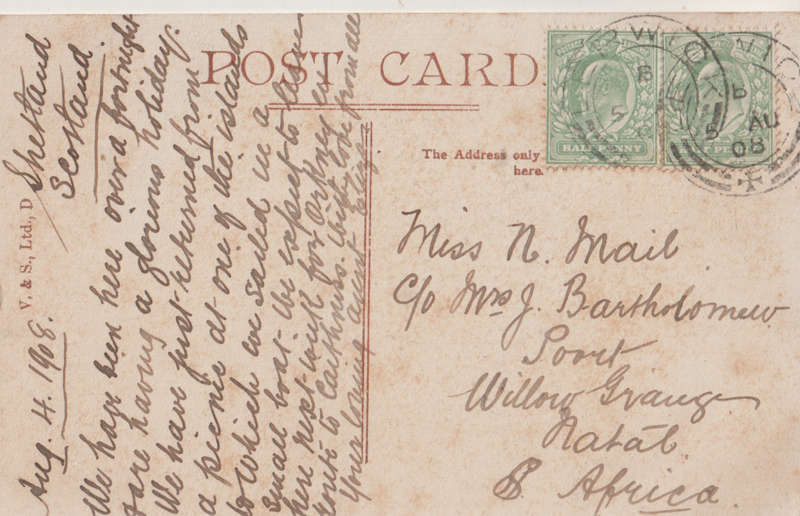 POST CARD
The Address only
here.
V. & S., Ltd., D
Shetland
Scotland.
Aug. 4. 1908.
We have been here over a fortnight
& are having a glorious holiday.
We have just returned from
a picnic at one of the islands
to which we sailed in a
small boat. We expect to leave
here next week for Orkney en
route to Caithness. With love from all
Your loving aunt Eliza
Miss N. Mail
C/o Mrs J. Bartholomew
Poort
Willow Grange
Natal
S. Africa.
HALF PENNY
LERWICK
5
AU
08